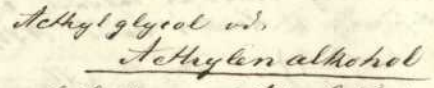 Aethylglycol vid.
Aethylenalkohol